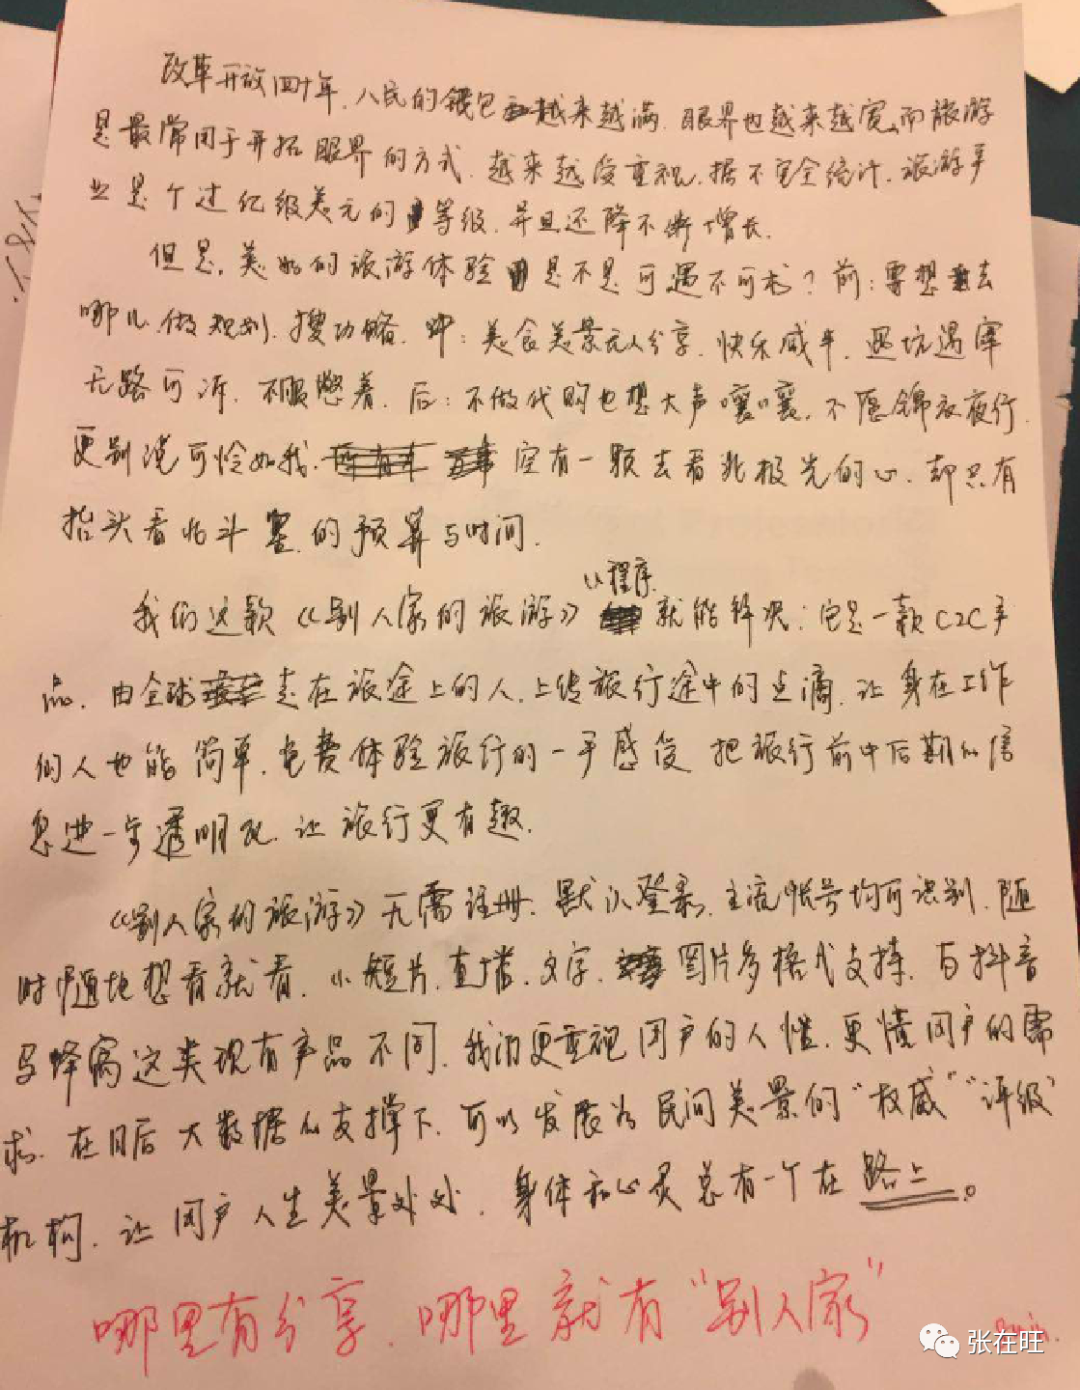 改革开放四十年,人民的钱包越来越满,眼界也越来越宽,而旅游
是最常用于开拓眼界的方式,越来越受重视,据不完全统计,旅游产
业是个过亿级美元的等级,并且还降不断增长.
但是,美好的旅游体验是不是可遇不可求?前:要想去
哪儿,做规划,搜功略,中:美食美景无人分享,快乐减半,遇坑遇宰
无路可诉,不服憋着,后:不做代购也想大声嚷嚷,不愿锦衣夜行.
更别说可怜如我,空有一颗去看北极光的心,却只有
抬头看北斗星的预算与时间.
小程序
我们这款《别人家的旅游》就能解决:它是一款C2C产
品,由全球走在旅途上的人,上传旅行途中的点滴,让身在工作
的人也能简单,免费体验旅行的一手感受,把旅行前中后期的信
息进一步透明化,让旅行更有趣.
《别人家的旅游》无需注册,默认登录,主流帐号均可识别,随
时随地想看就看,小短片,直播,文字,图片多格式支持,与抖音
马蜂窝这类现有产品不同,我们更重视用户的人性,更懂用户的需
求,在日后大数据的支撑下,可以发展为民间美景的"权威""评级"
机构,让用户人生美景处处,身体和心灵总有一个在路上。
哪里有分享,哪里就有"别人家"
张在旺